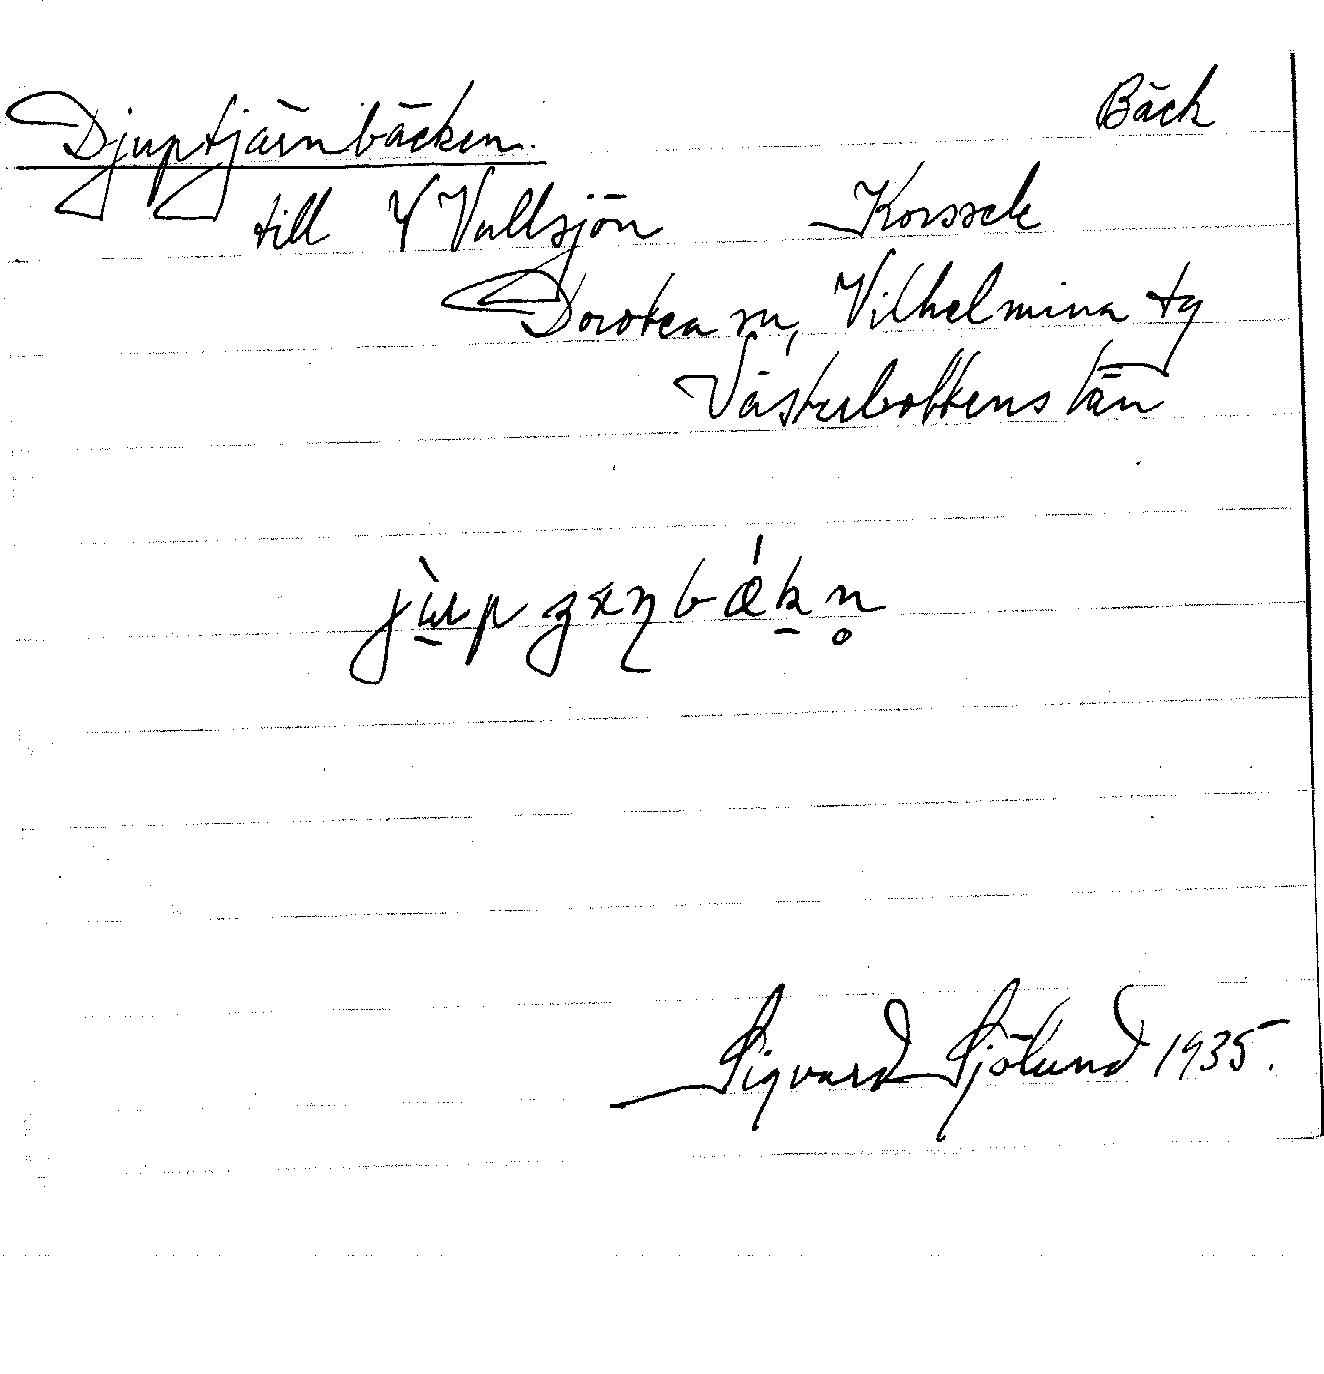 Djuptjärnbäcken. Bäck
till Y Vallsjön Korssele
Dorotea sn, Vilhelmina tg
Västerbottens län
Sigvard Sjölund 1935.